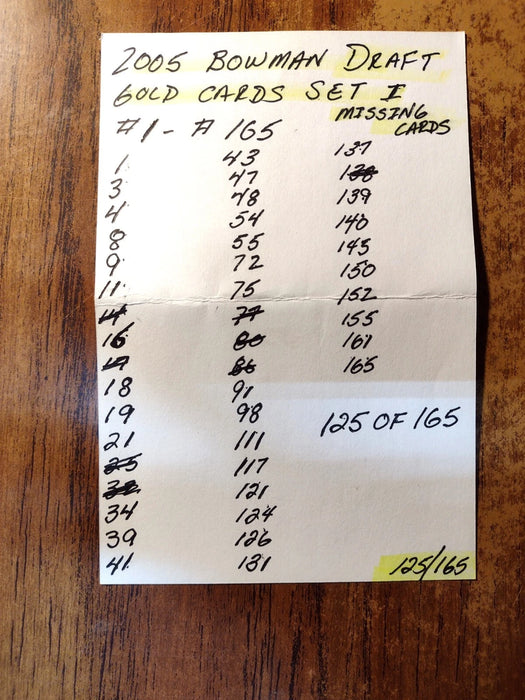 2005 BOWMAN DRAFT
GOLD CARDS SET I
MISSING
CARDS
#1 - #165
1
3
4
8
9
11
14
16
17
18
19
21
25
32
34
39
41
43
47
48
54
55
72
75
77
80
86
91
98
111
117
121
124
126
131
137
138
139
140
145
150
152
155
161
165
125 OF 165
125/165